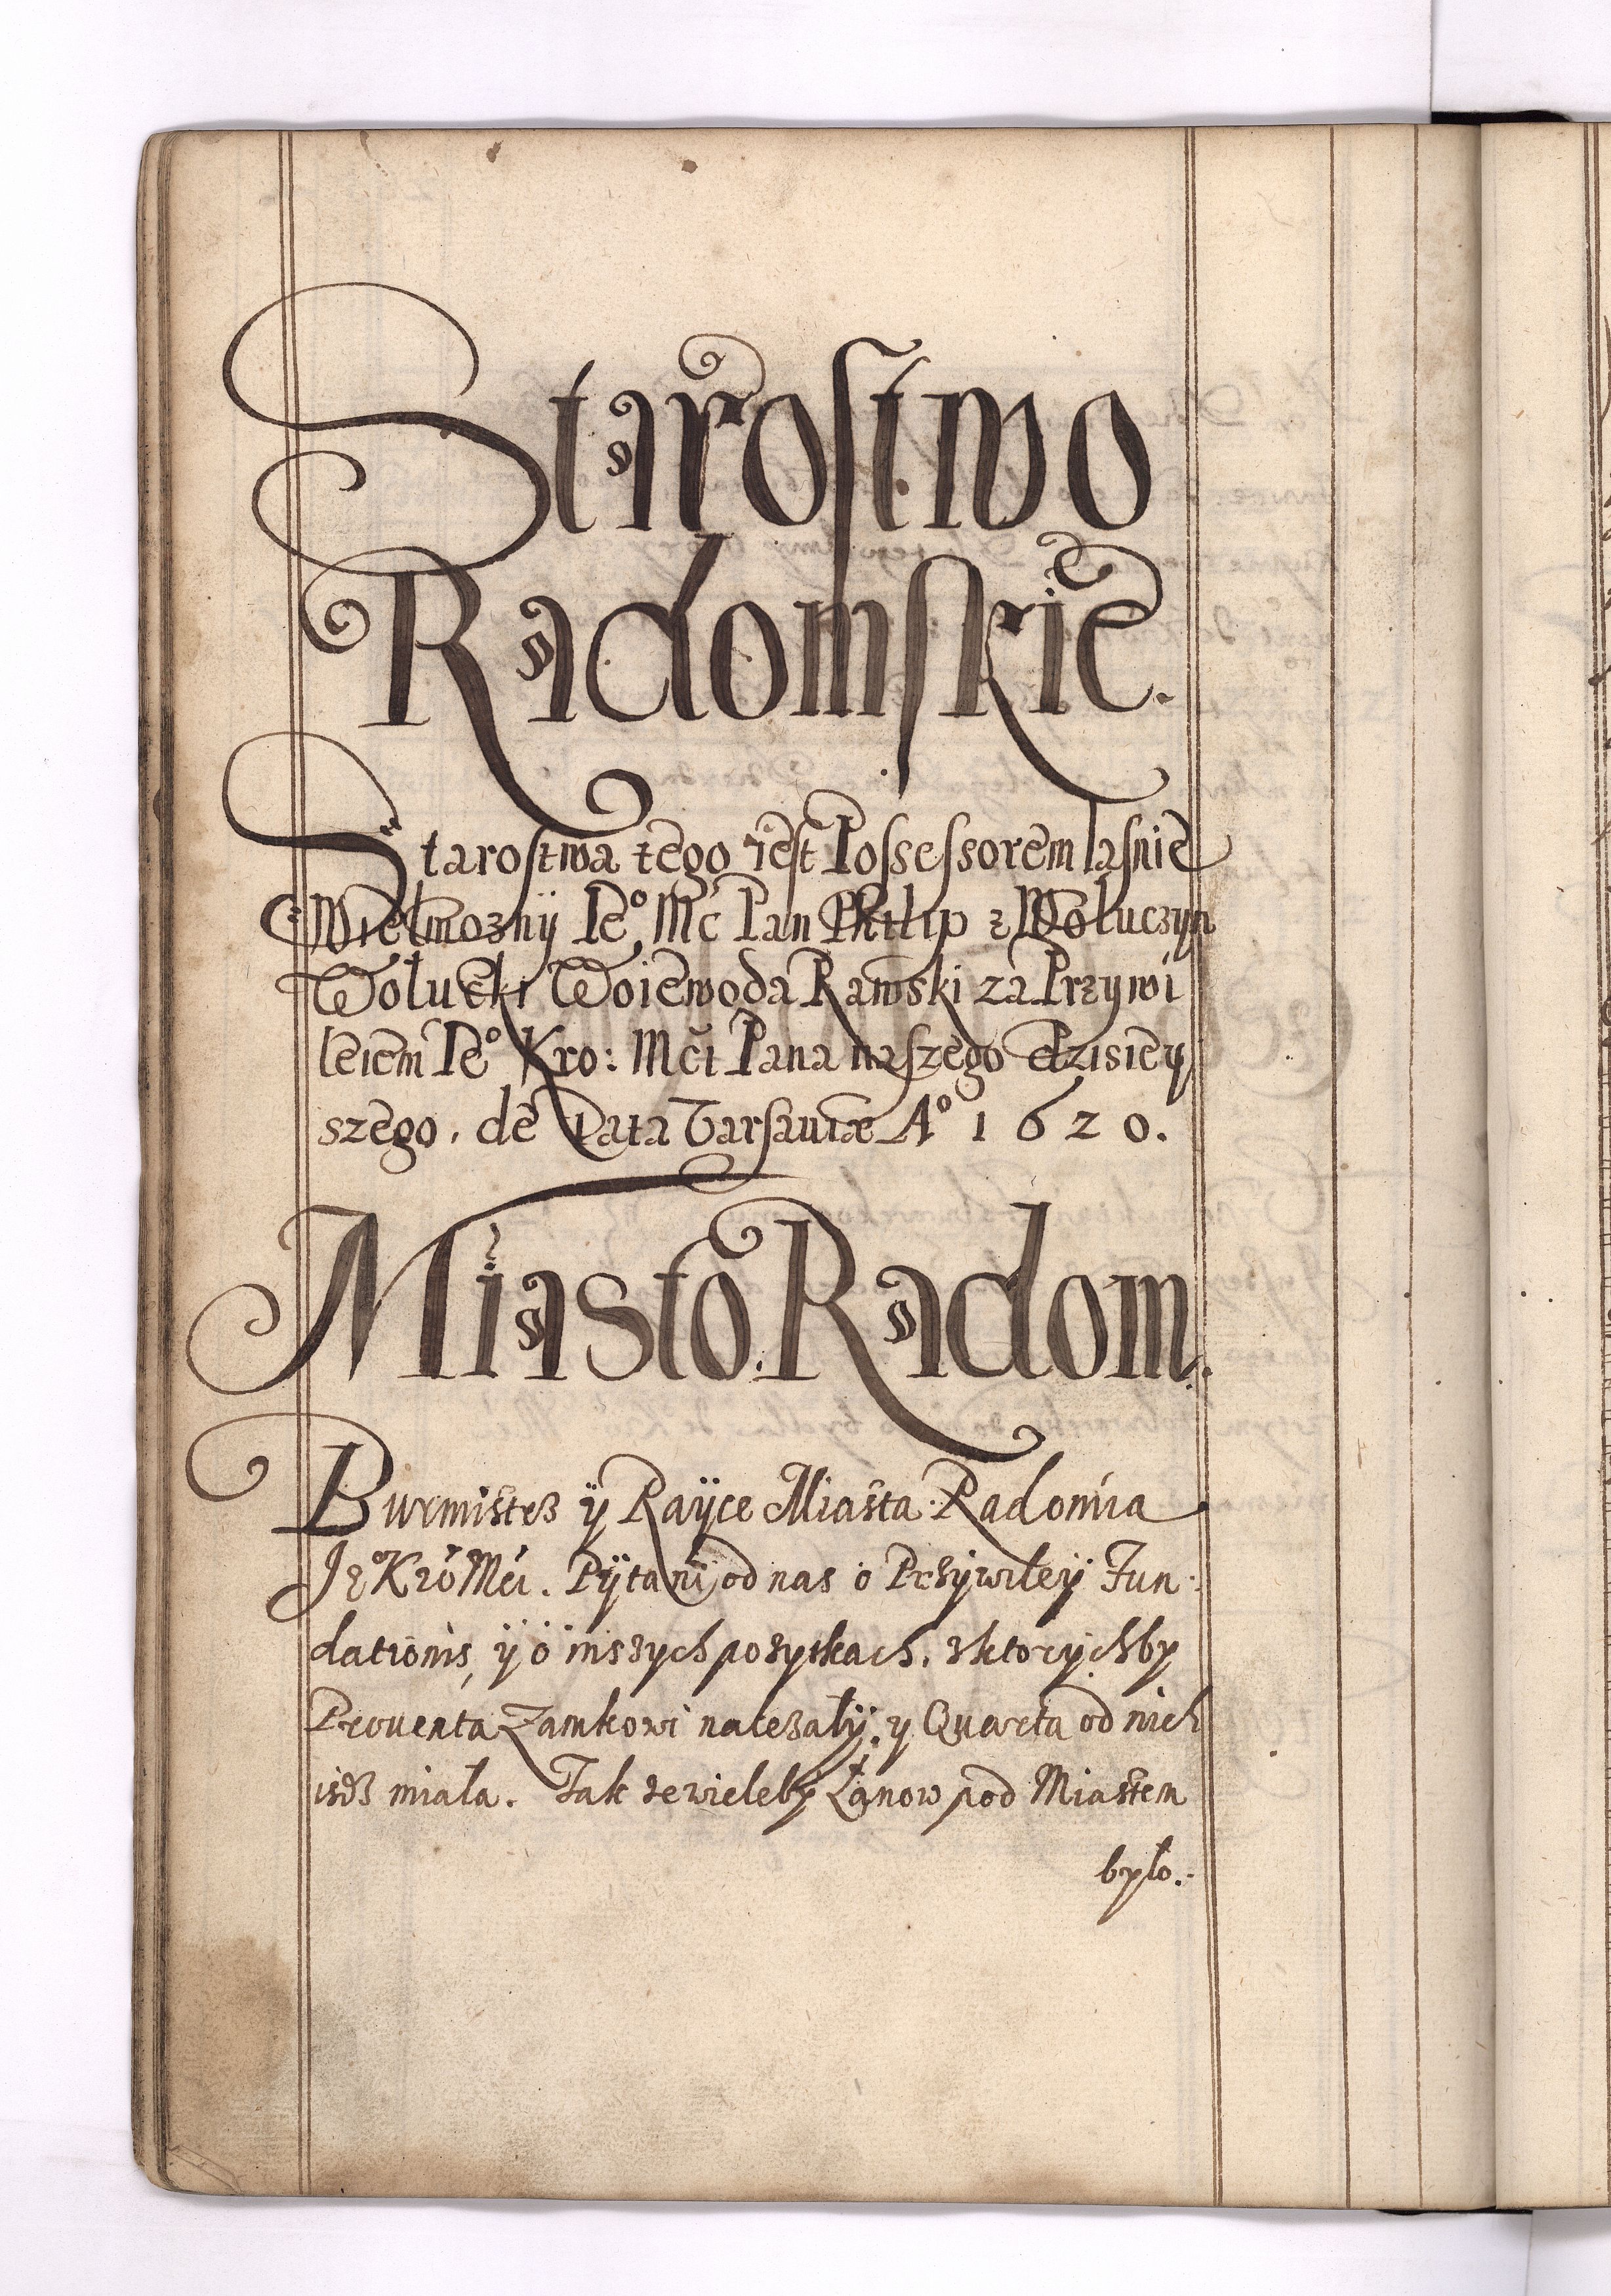 Starostwo
Radomskie.
Starostwa tego iest Possessorem Iasnie
Wielmoznÿ Ie° Mć Pan Philip z Wołuczyn
Wołucki Woiewoda Rawski za Przywi
leiem Ie° Kro: Mći Pana naszego dzisiey
szego. de Data Varsauiæ A° 1620.
Miasto Radom.
Burmistrz ÿ Raÿce Miasta Radomia
Je° Kró Mći. Pÿtani od nas o Przywiley Fun
dationis, ÿ o inszych pozytkach, z ktorychby
Prouenta Zamkowi nalezałÿ, y Quarta od nich
isdz miała. Tak zewieleby Łanow pod Miastem
było.